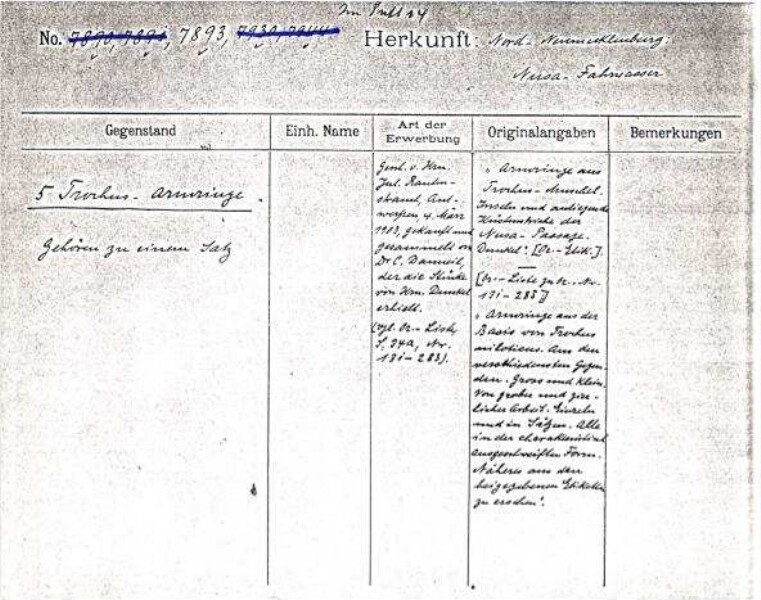 Im Pult 24
No. 7890, 7891, 7893, 7930, 7944 Herkunft: Nord-Neumecklenburg:
Nusa-Fahrwasser
Gegenstand
Einh. Name
Art der
Erwerbung
Originalangaben
Bemerkungen
5 Trochus-Armringe.
Gehören zu einem Satz
Gesch. v. Hrn.
Jul. Rauten-
strauch, Ant-
werpen, 4. März
1903, gekauft und
gesammelt von
Dr C. Danneil,
der die Stücke
von Hrn. Dunkel
erhielt.
(vgl. Or.-Liste,
S. 34a, Nr.
181-283).
"Armringe aus
Trochus-Muschel.
Inseln und anliegende
Küstenstriche der
Nusa-Passage.
Dunkel". [Or.-Etik.].
[Or.-Liste zu Or.-Nr.
181-283]
"Armringe aus der
Basis von Trochus
niloticus. Aus den
verschiedensten Gegen-
den. Gross und klein.
Von grober und zier-
licher Arbeit. Einzeln
und in Sätzen. Alle
in der charakteristisch
ausgeschweiften Form.
Näheres aus den
beigegebenen Etiketten
zu ersehen".